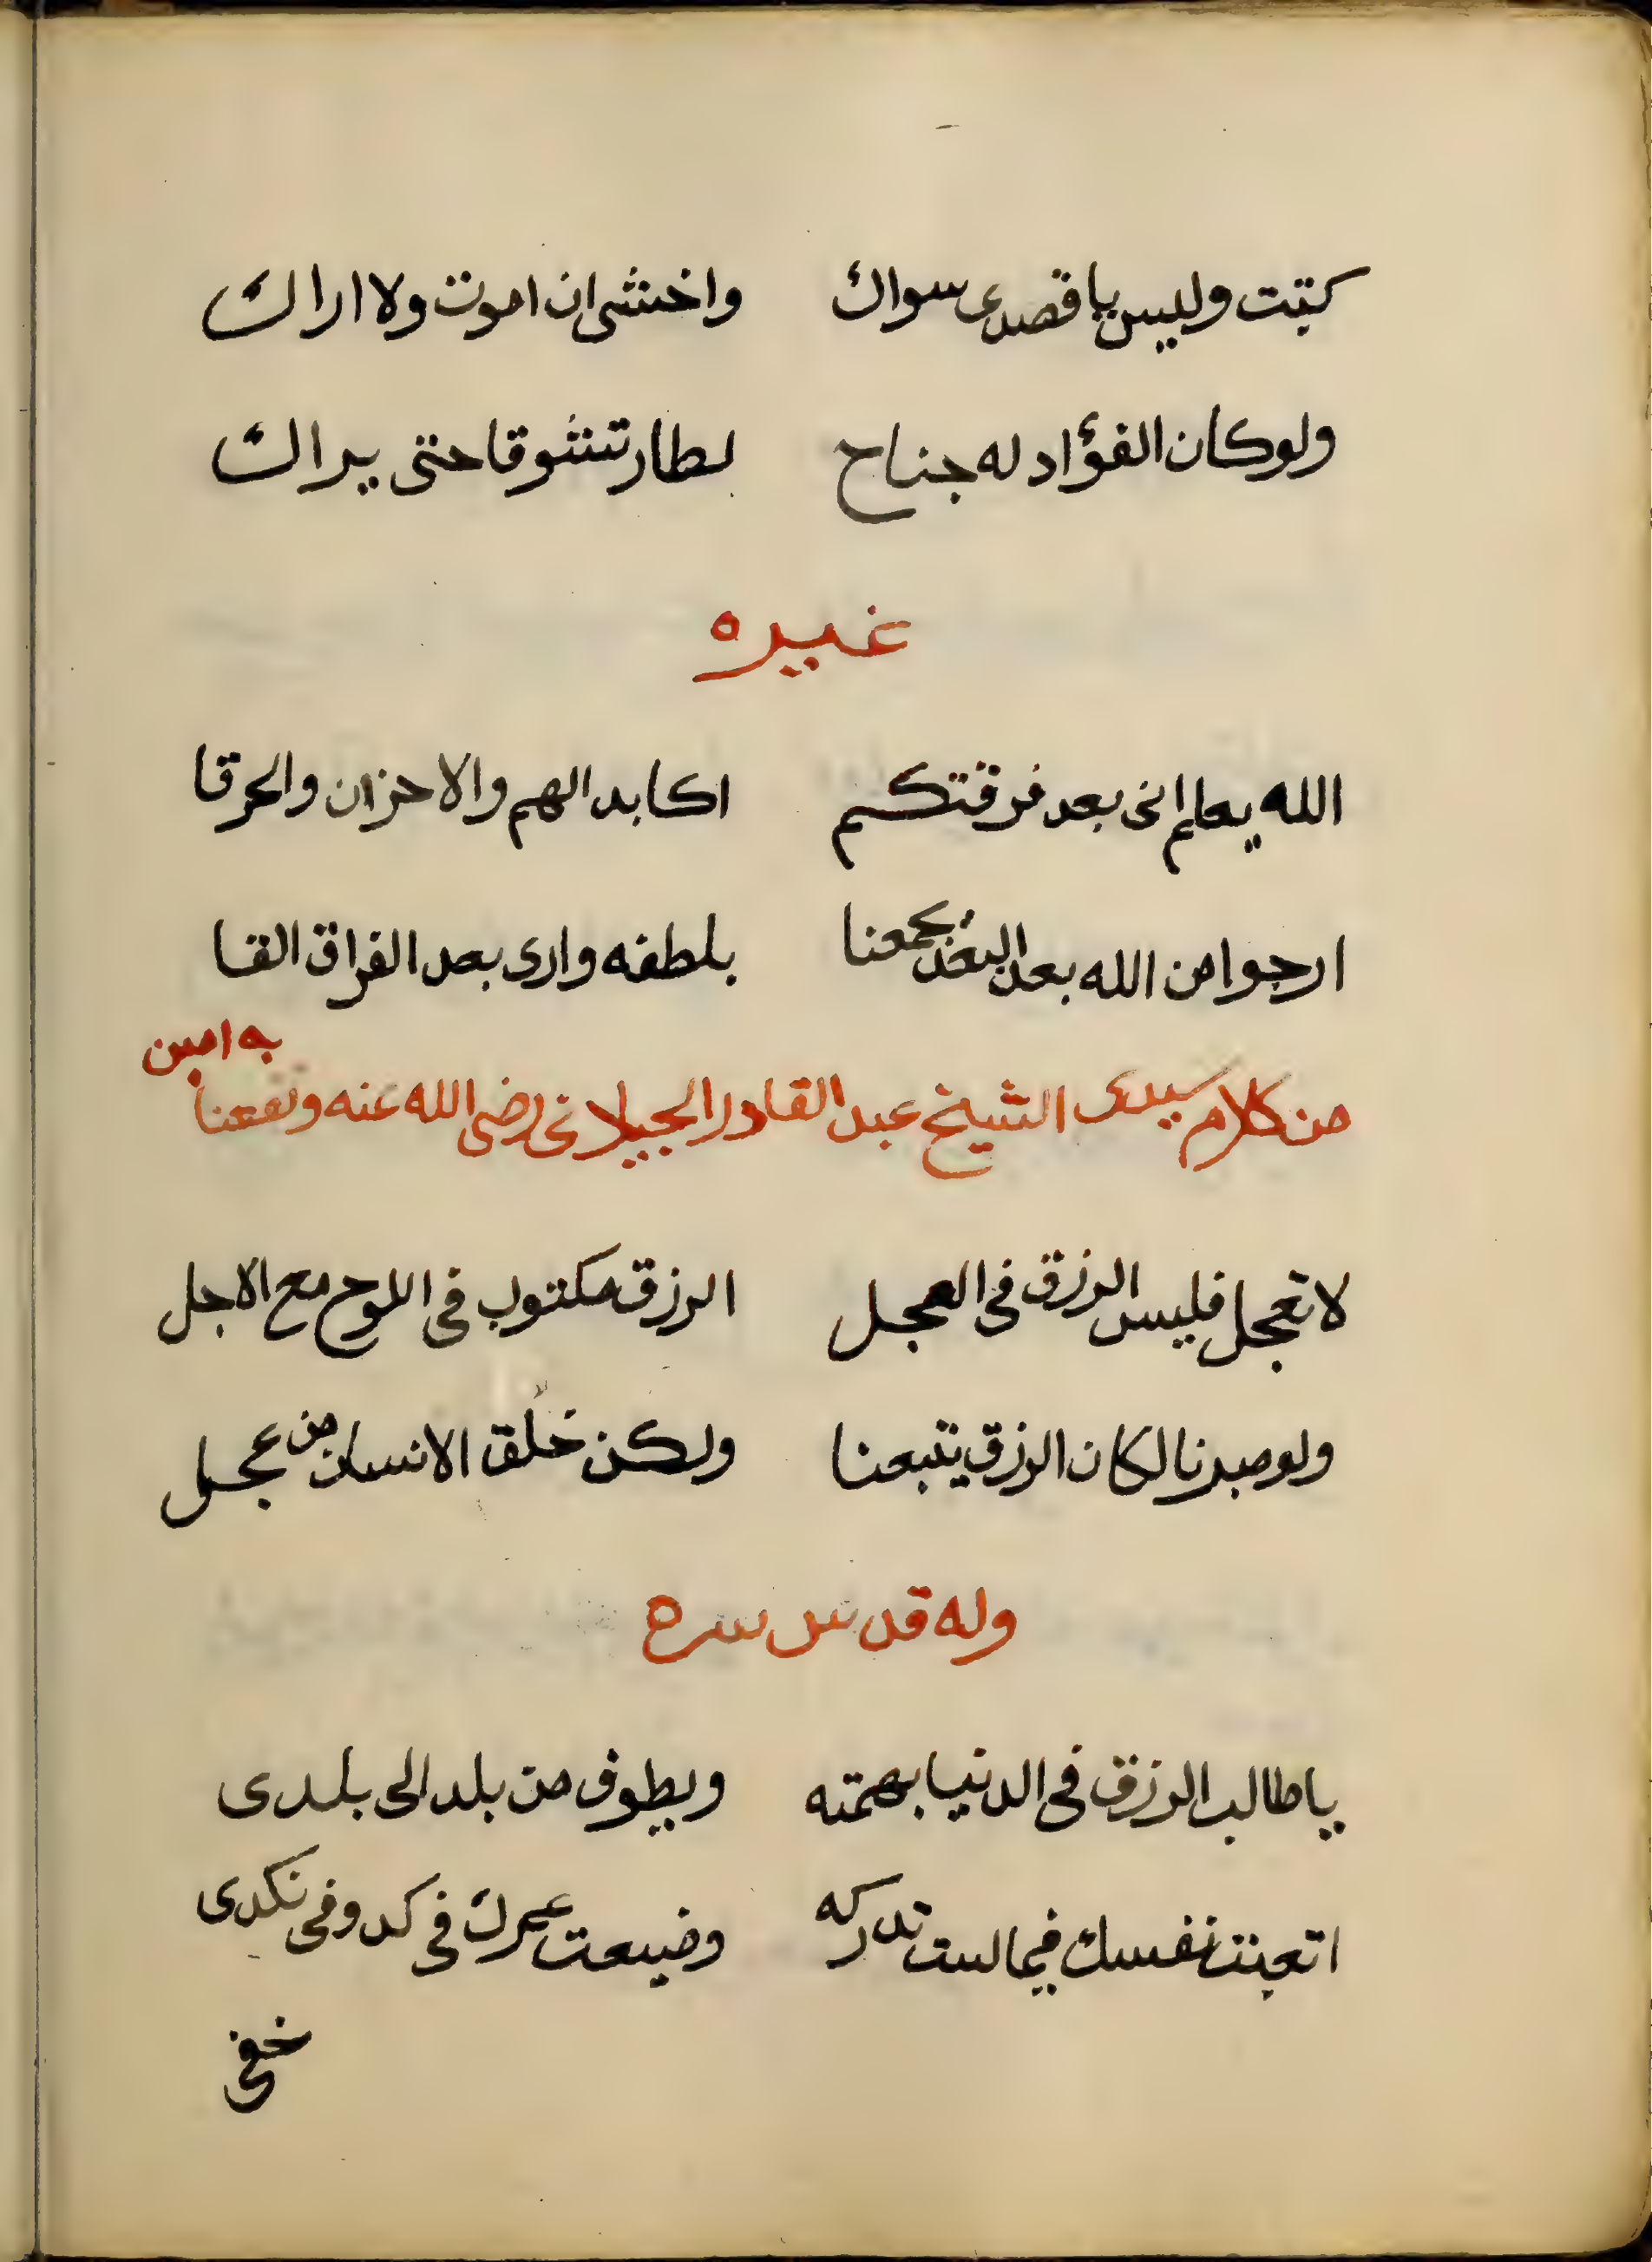 كتبت وليس يا قصدى سواك واخشى ان اموت ولا اراك
ولو كان الفؤاد له جناح لطار تشوقا حتى يراك
غيره
الله يعلم انى بعد فرقتكم اكابد الهم والاحزان والحرقا
ارجوا من الله بعد البعد يجمعنا بلطفه وارى بعد الفراق القا
من كلام سيدى الشيخ عبد القادر الجيلانى رضى الله عنه ونفعنا به امين
لا تعجل فليس الرزق فى العجل الرزق مكتوب فى اللوح مع الاجل
ولو صبرنا لكان الرزق يتبعنا ولكن خلق الانسان من عجل
وله قدس سره
يا طالب الرزق فى الدنيا بهمته ويطوف من بلد الى بلدى
اتعبت نفسك فيما لست تدركه وضيعت عمرك فى كد وفى نكدى
خفى